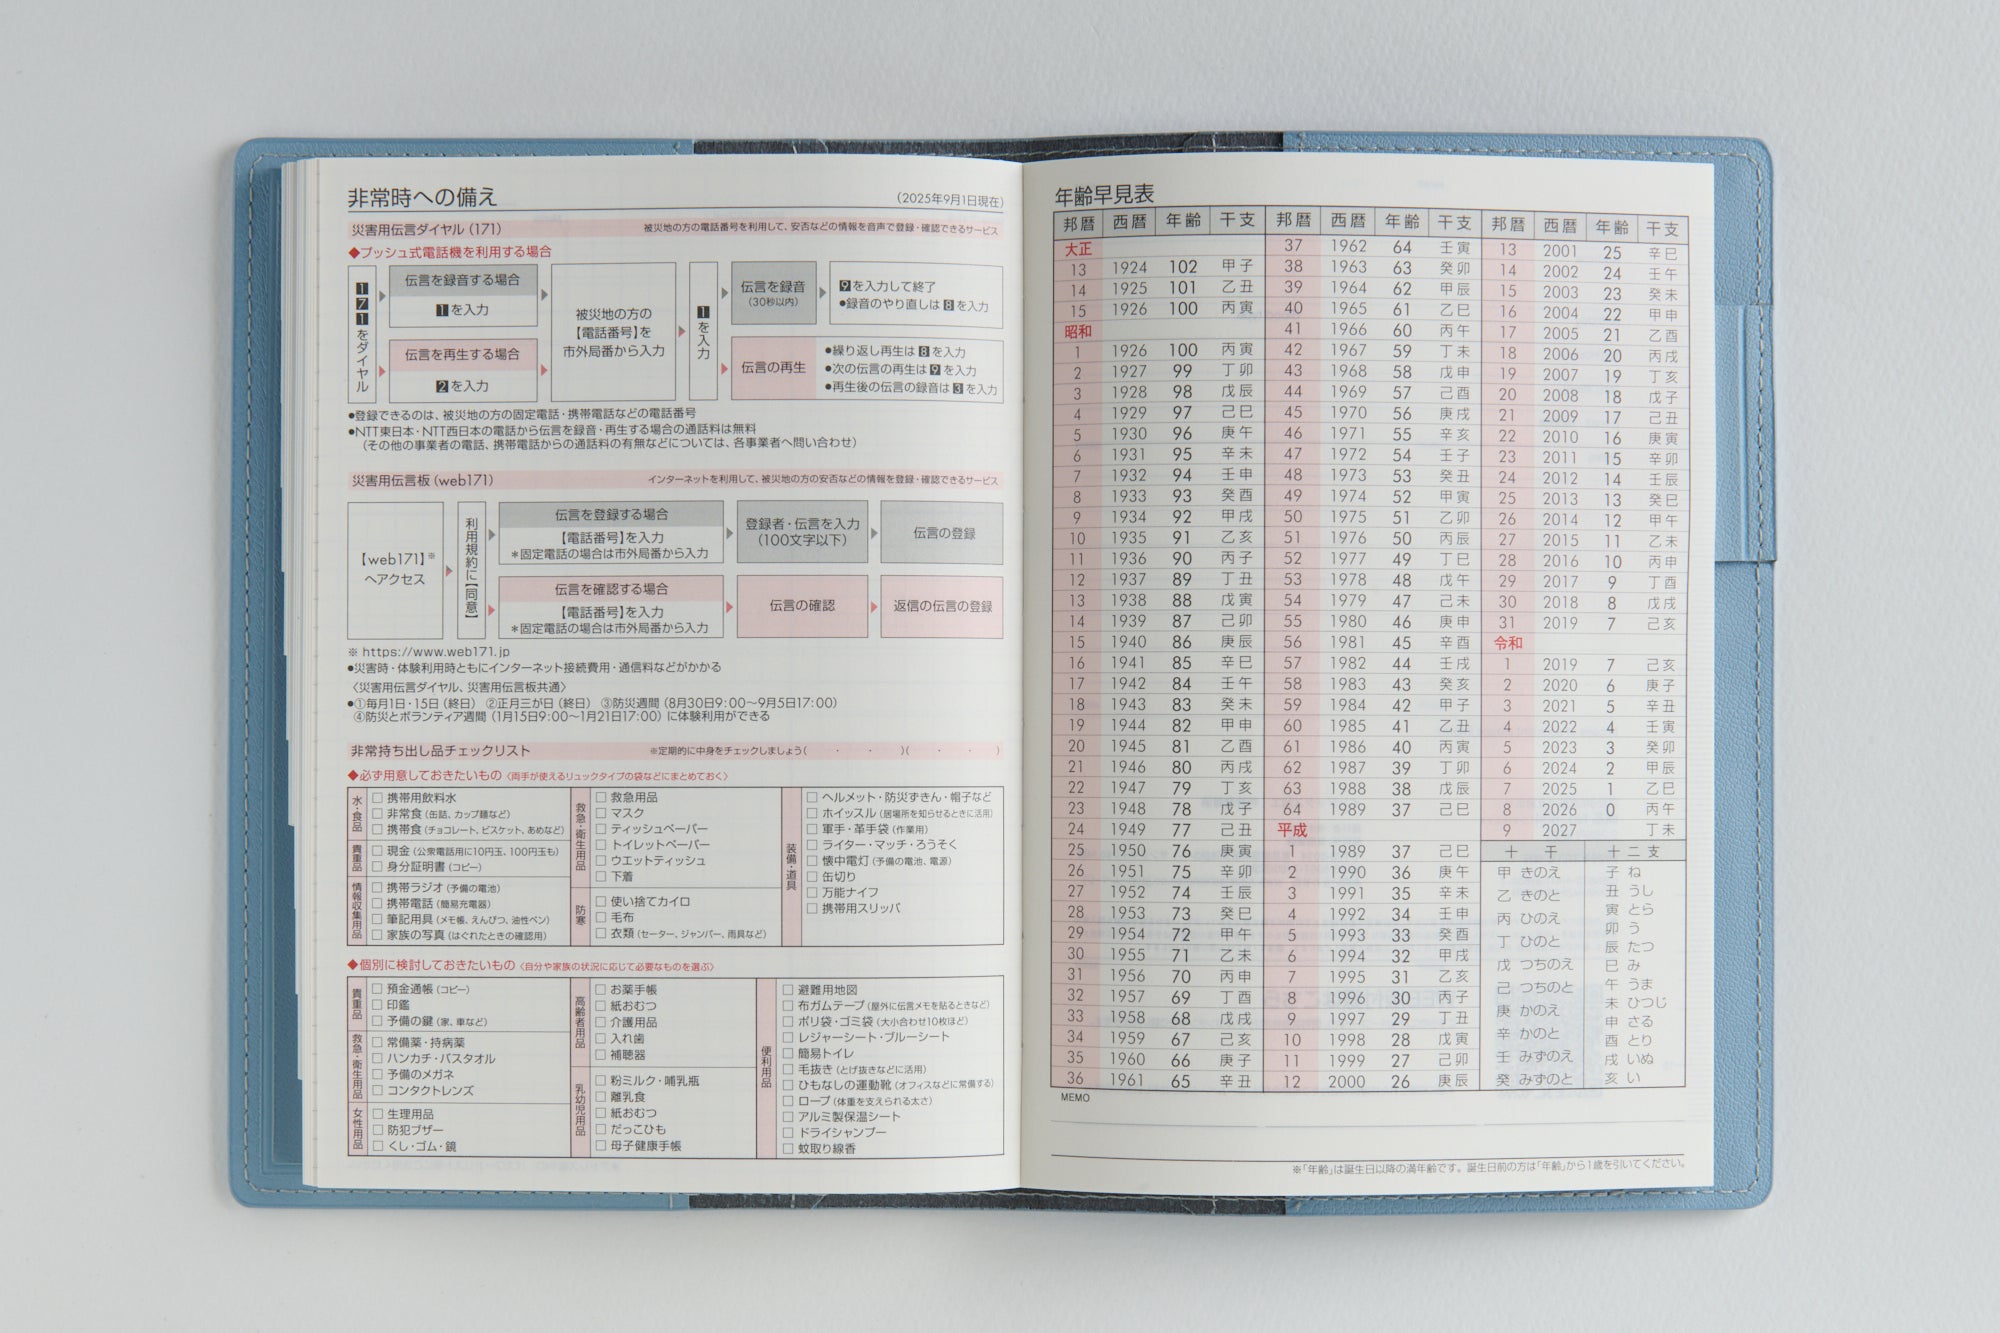 非常時への備え
(2025年9月1日現在)
災害用伝言ダイヤル(171)
被災地の方の電話番号を利用して、安否などの情報を音声で登録・確認できるサービス
◆プッシュ式電話機を利用する場合
171をダイヤル
伝言を録音する場合
1を入力
伝言を再生する場合
2を入力
被災地の方の
【電話番号】を
市外局番から入力
1を入力
伝言を録音
(30秒以内)
9を入力して終了
●録音のやり直しは8を入力
伝言の再生
●繰り返し再生は8を入力
●次の伝言の再生は9を入力
●再生後の伝言の録音は3を入力
●登録できるのは、被災地の方の固定電話・携帯電話などの電話番号
●NTT東日本・NTT西日本の電話から伝言を録音・再生する場合の通話料は無料
(その他の事業者の電話、携帯電話からの通話料の有無などについては、各事業者へ問い合わせ)
災害用伝言板(web171)
インターネットを利用して、被災地の方の安否などの情報を登録・確認できるサービス
【web171】※
へアクセス
利用規約に【同意】
伝言を登録する場合
【電話番号】を入力
*固定電話の場合は市外局番から入力
登録者・伝言を入力
(100文字以下)
伝言の登録
伝言を確認する場合
【電話番号】を入力
*固定電話の場合は市外局番から入力
伝言の確認
返信の伝言の登録
※ https://www.web171.jp
●災害時・体験利用時ともにインターネット接続費用・通信料などがかかる
〈災害用伝言ダイヤル、災害用伝言板共通〉
●①毎月1日・15日(終日) ②正月三が日(終日) ③防災週間(8月30日9:00〜9月5日17:00)
④防災とボランティア週間(1月15日9:00〜1月21日17:00)に体験利用ができる
非常持ち出し品チェックリスト
※定期的に中身をチェックしましょう( ・ ・ )( ・ ・ )
◆必ず用意しておきたいもの〈両手が使えるリュックタイプの袋などにまとめておく〉
水・食品
□ 携帯用飲料水
□ 非常食(缶詰、カップ麺など)
□ 携帯食(チョコレート、ビスケット、あめなど)
貴重品
□ 現金(公衆電話用に10円玉、100円玉も)
□ 身分証明書(コピー)
情報収集用品
□ 携帯ラジオ(予備の電池)
□ 携帯電話(簡易充電器)
□ 筆記用具(メモ帳、えんぴつ、油性ペン)
□ 家族の写真(はぐれたときの確認用)
救急・衛生用品
□ 救急用品
□ マスク
□ ティッシュペーパー
□ トイレットペーパー
□ ウエットティッシュ
□ 下着
防寒
□ 使い捨てカイロ
□ 毛布
□ 衣類(セーター、ジャンパー、雨具など)
装備・道具
□ ヘルメット・防災ずきん・帽子など
□ ホイッスル(居場所を知らせるときに活用)
□ 軍手・革手袋(作業用)
□ ライター・マッチ・ろうそく
□ 懐中電灯(予備の電池、電源)
□ 缶切り
□ 万能ナイフ
□ 携帯用スリッパ
◆個別に検討しておきたいもの〈自分や家族の状況に応じて必要なものを選ぶ〉
貴重品
□ 預金通帳(コピー)
□ 印鑑
□ 予備の鍵(家、車など)
救急・衛生用品
□ 常備薬・持病薬
□ ハンカチ・バスタオル
□ 予備のメガネ
□ コンタクトレンズ
女性用品
□ 生理用品
□ 防犯ブザー
□ くし・ゴム・鏡
高齢者用品
□ お薬手帳
□ 紙おむつ
□ 介護用品
□ 入れ歯
□ 補聴器
乳幼児用品
□ 粉ミルク・哺乳瓶
□ 離乳食
□ 紙おむつ
□ だっこひも
□ 母子健康手帳
便利用品
□ 避難用地図
□ 布ガムテープ(屋外に伝言メモを貼るときなど)
□ ポリ袋・ゴミ袋(大小合わせ10枚ほど)
□ レジャーシート・ブルーシート
□ 簡易トイレ
□ 毛抜き(とげ抜きなどに活用)
□ ひもなしの運動靴(オフィスなどに常備する)
□ ロープ(体重を支えられる太さ)
□ アルミ製保温シート
□ ドライシャンプー
□ 蚊取り線香
年齢早見表
邦暦 西暦 年齢 干支
大正
13 1924 102 甲子
14 1925 101 乙丑
15 1926 100 丙寅
昭和
1 1926 100 丙寅
2 1927 99 丁卯
3 1928 98 戊辰
4 1929 97 己巳
5 1930 96 庚午
6 1931 95 辛未
7 1932 94 壬申
8 1933 93 癸酉
9 1934 92 甲戌
10 1935 91 乙亥
11 1936 90 丙子
12 1937 89 丁丑
13 1938 88 戊寅
14 1939 87 己卯
15 1940 86 庚辰
16 1941 85 辛巳
17 1942 84 壬午
18 1943 83 癸未
19 1944 82 甲申
20 1945 81 乙酉
21 1946 80 丙戌
22 1947 79 丁亥
23 1948 78 戊子
24 1949 77 己丑
25 1950 76 庚寅
26 1951 75 辛卯
27 1952 74 壬辰
28 1953 73 癸巳
29 1954 72 甲午
30 1955 71 乙未
31 1956 70 丙申
32 1957 69 丁酉
33 1958 68 戊戌
34 1959 67 己亥
35 1960 66 庚子
36 1961 65 辛丑
邦暦 西暦 年齢 干支
37 1962 64 壬寅
38 1963 63 癸卯
39 1964 62 甲辰
40 1965 61 乙巳
41 1966 60 丙午
42 1967 59 丁未
43 1968 58 戊申
44 1969 57 己酉
45 1970 56 庚戌
46 1971 55 辛亥
47 1972 54 壬子
48 1973 53 癸丑
49 1974 52 甲寅
50 1975 51 乙卯
51 1976 50 丙辰
52 1977 49 丁巳
53 1978 48 戊午
54 1979 47 己未
55 1980 46 庚申
56 1981 45 辛酉
57 1982 44 壬戌
58 1983 43 癸亥
59 1984 42 甲子
60 1985 41 乙丑
61 1986 40 丙寅
62 1987 39 丁卯
63 1988 38 戊辰
64 1989 37 己巳
平成
1 1989 37 己巳
2 1990 36 庚午
3 1991 35 辛未
4 1992 34 壬申
5 1993 33 癸酉
6 1994 32 甲戌
7 1995 31 乙亥
8 1996 30 丙子
9 1997 29 丁丑
10 1998 28 戊寅
11 1999 27 己卯
12 2000 26 庚辰
邦暦 西暦 年齢 干支
13 2001 25 辛巳
14 2002 24 壬午
15 2003 23 癸未
16 2004 22 甲申
17 2005 21 乙酉
18 2006 20 丙戌
19 2007 19 丁亥
20 2008 18 戊子
21 2009 17 己丑
22 2010 16 庚寅
23 2011 15 辛卯
24 2012 14 壬辰
25 2013 13 癸巳
26 2014 12 甲午
27 2015 11 乙未
28 2016 10 丙申
29 2017 9 丁酉
30 2018 8 戊戌
31 2019 7 己亥
令和
1 2019 7 己亥
2 2020 6 庚子
3 2021 5 辛丑
4 2022 4 壬寅
5 2023 3 癸卯
6 2024 2 甲辰
7 2025 1 乙巳
8 2026 0 丙午
9 2027 丁未
十干
甲 きのえ
乙 きのと
丙 ひのえ
丁 ひのと
戊 つちのえ
己 つちのと
庚 かのえ
辛 かのと
壬 みずのえ
癸 みずのと
十二支
子 ね
丑 うし
寅 とら
卯 う
辰 たつ
巳 み
午 うま
未 ひつじ
申 さる
酉 とり
戌 いぬ
亥 い
MEMO
※「年齢」は誕生日以降の満年齢です。誕生日前の方は「年齢」から1歳を引いてください。